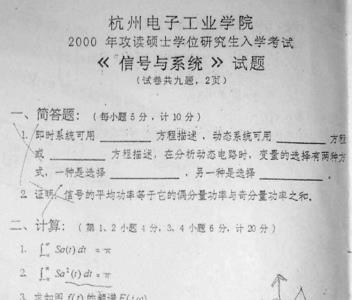 杭州电子工业学院
2000 年攻读硕士学位研究生入学考试
《 信号与系统 》 试题
(试卷共九题,2页)
一、简答题:(每小题 5 分,计 10 分)
1. 即时系统可用 ________ 方程描述,动态系统可用 ________ 方程
或 ________ 方程描述,在分析动态电路时,变量的选择有两种方
式,一种是选择 ________ ,另一种是选择 ________ .
2. 证明:信号的平均功率等于它的偶分量功率与奇分量功率之和.
二、计算:(第 1. 2 小题 4 分, 3. 4 小题 6 分, 计 20 分)
1. ∫₀^∞ Sa(t) dt = π
2. ∫₀^∞ Sa²(t) dt = π
3. 求如图 f(t) 的频谱 F(jω)